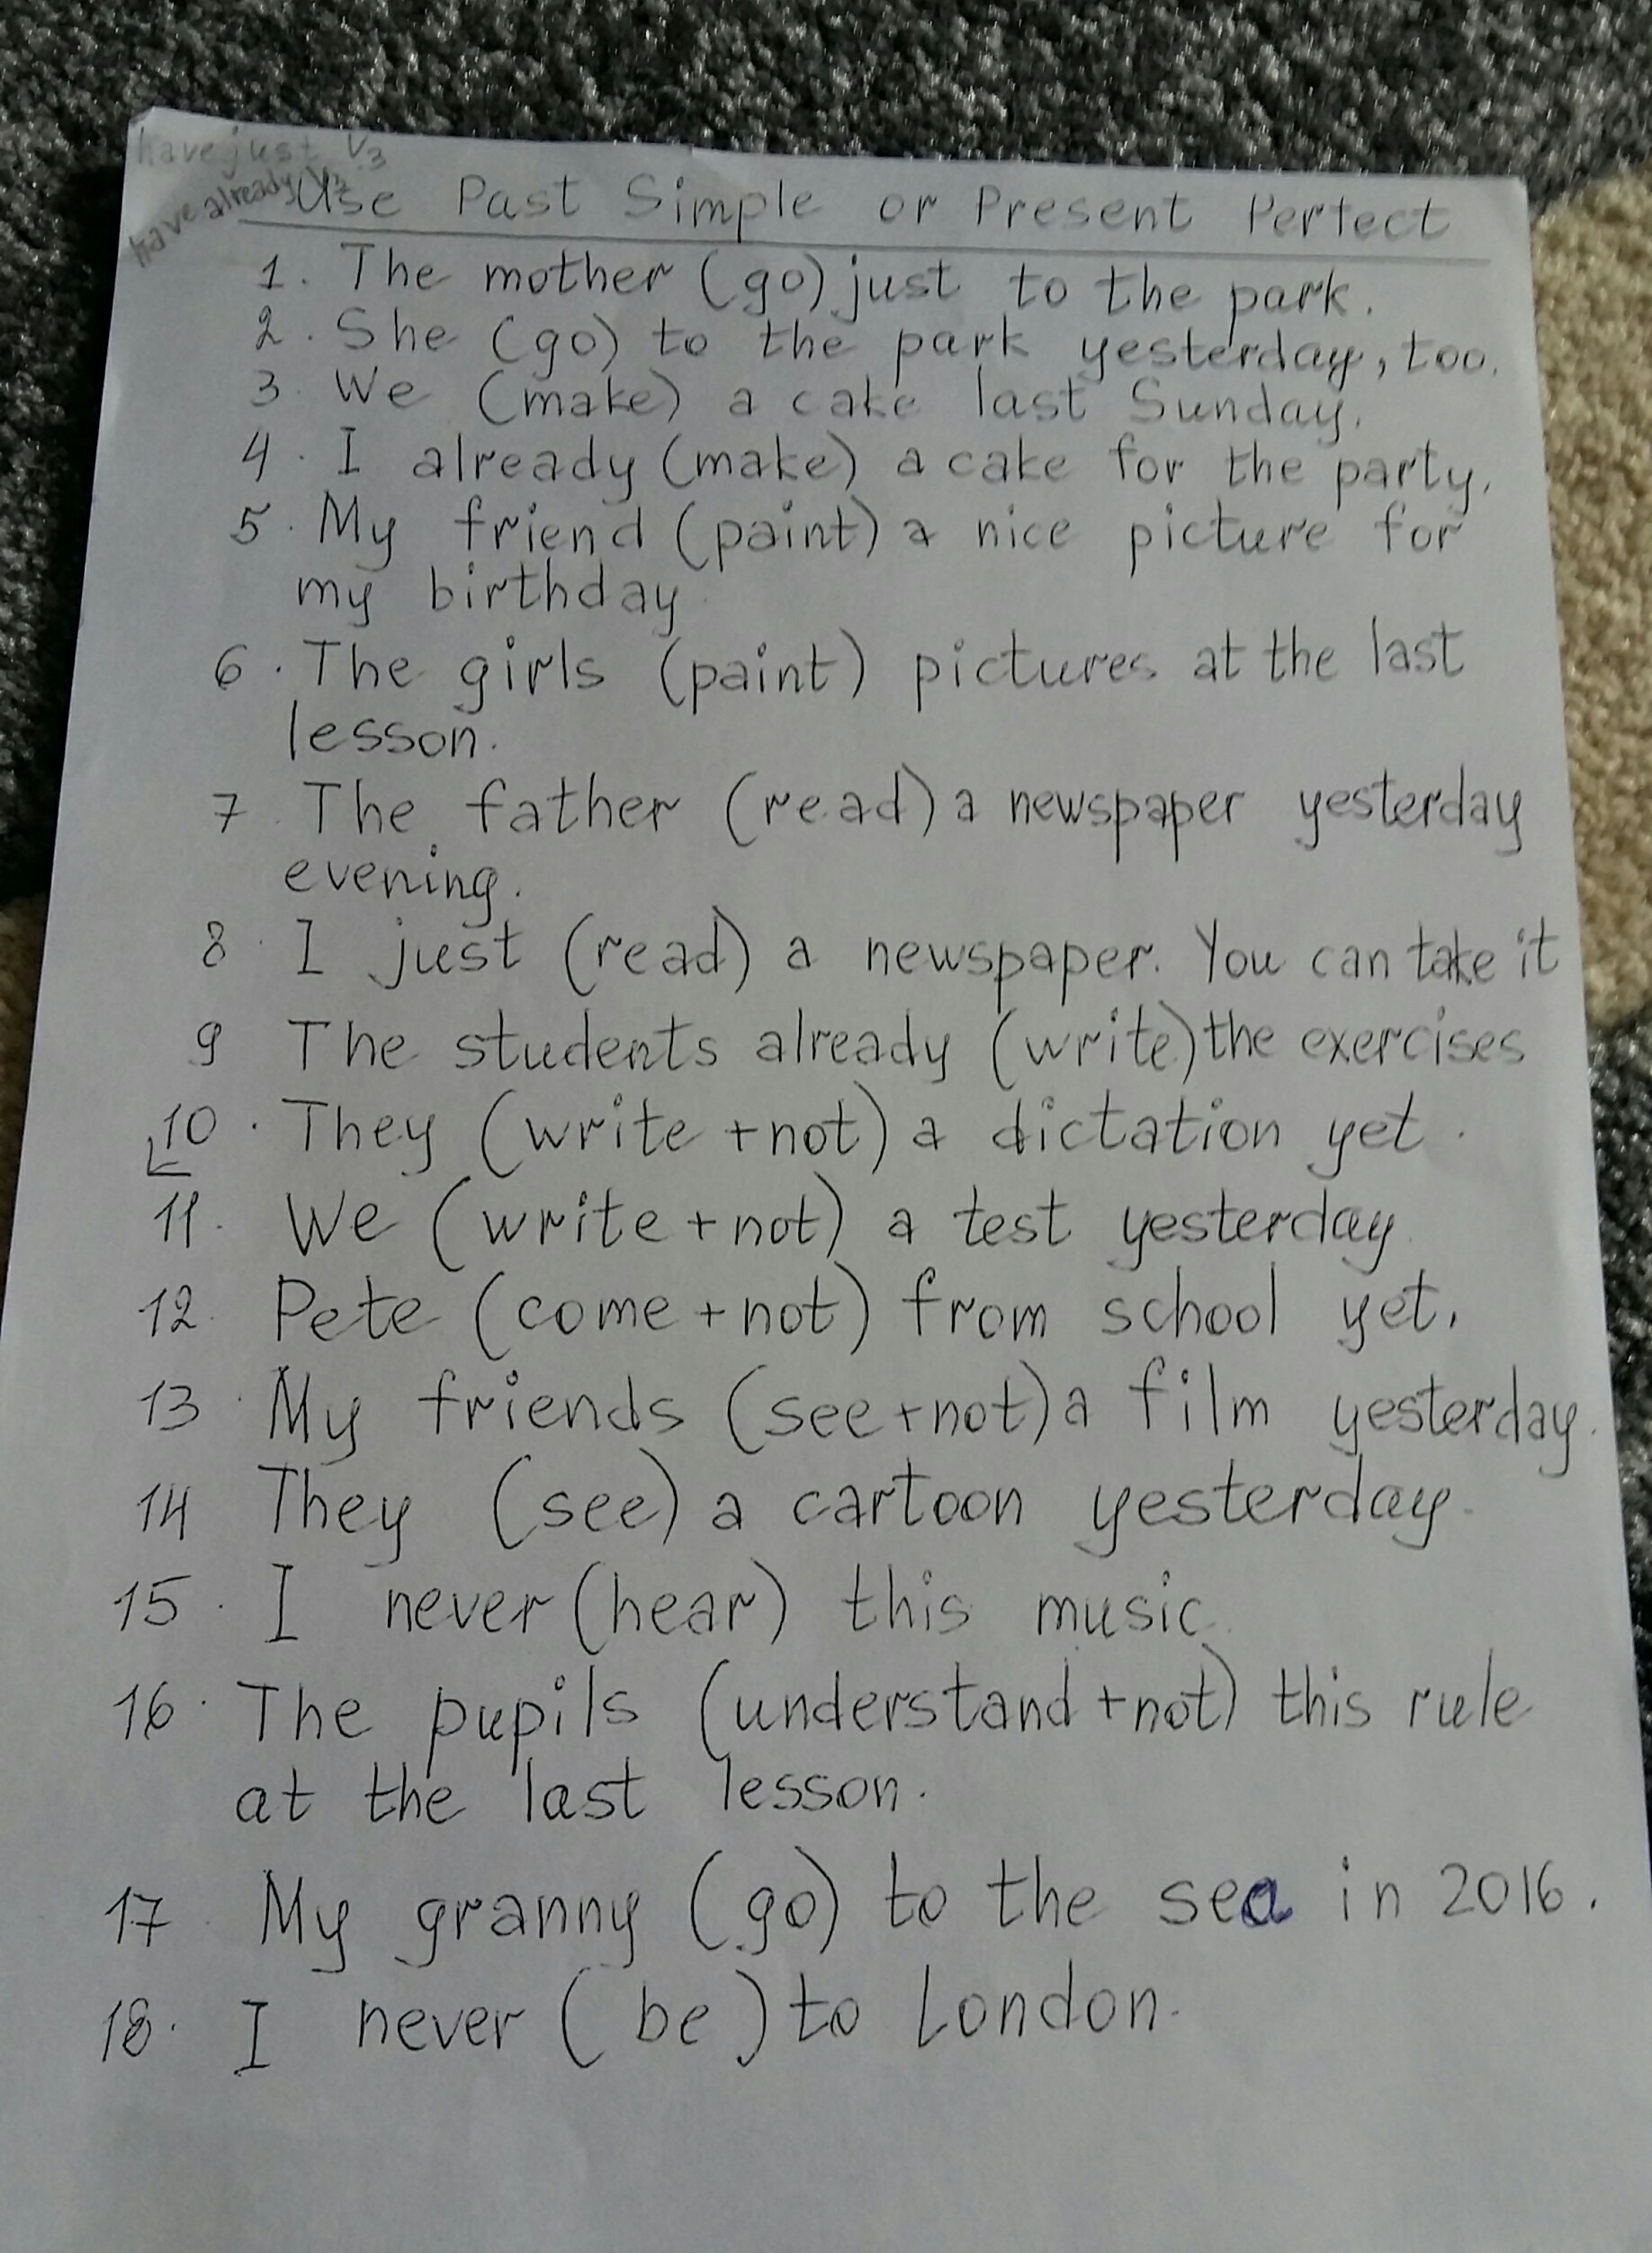 have just V3
have already V3
Use Past Simple or Present Perfect
1. The mother (go) just to the park.
2. She (go) to the park yesterday, too.
3. We (make) a cake last Sunday.
4. I already (make) a cake for the party.
5. My friend (paint) a nice picture for
my birthday
6. The girls (paint) pictures at the last
lesson.
7 The father (read) a newspaper yesterday
evening.
8. I just (read) a newspaper. You can take it
9 The students already (write) the exercises
10. They (write +not) a dictation yet.
11. We (write + not) a test yesterday
12. Pete (come + not) from school yet.
13. My friends (see +not) a film yesterday.
14 They (see) a cartoon yesterday.
15. I never (hear) this music
16. The pupils (understand +not) this rule
at the last lesson.
17 My granny (go) to the sea in 2016.
18. I never (be) to London.